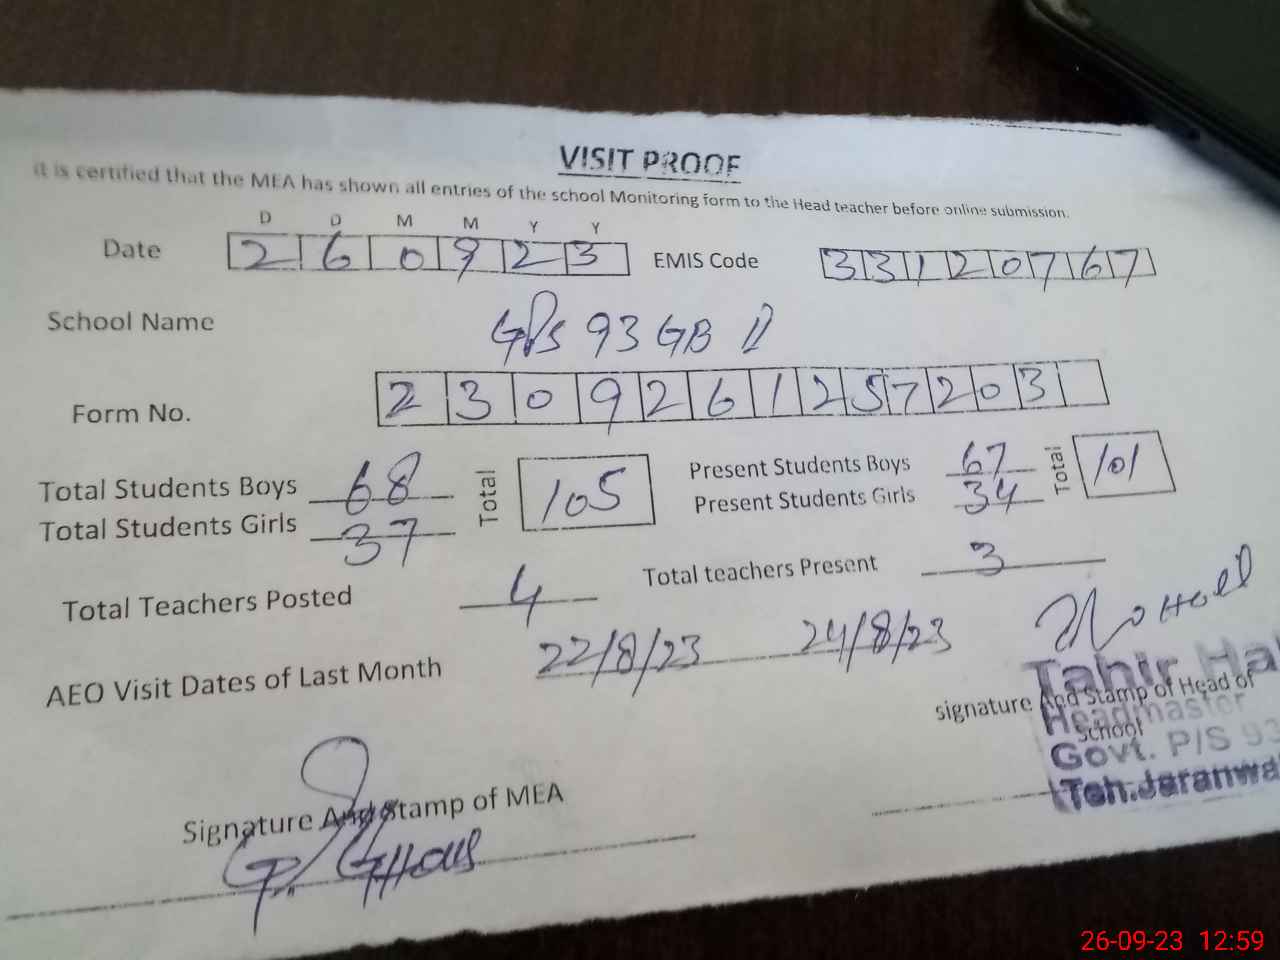 VISIT PROOF
it is certified that the MEA has shown all entries of the school Monitoring form to the Head teacher before online submission.
D D M M Y Y
Date 2 6 0 9 2 3 EMIS Code 3 3 1 2 0 7 6 7
School Name GPS 93 GB II
Form No. 2 3 0 9 2 6 1 2 5 7 2 0 3
Total Students Boys 68 Total 105 Present Students Boys 67 Total 101
Total Students Girls 37 Present Students Girls 34
Total Teachers Posted 4 Total teachers Present 3
AEO Visit Dates of Last Month 22/8/23 24/8/23
signature And Stamp of Head of
School
Tahir Ha
Headmaster
Govt. P/S 93
Teh.Jaranwa
Signature And Stamp of MEA
G. Ghous
26-09-23 12:59